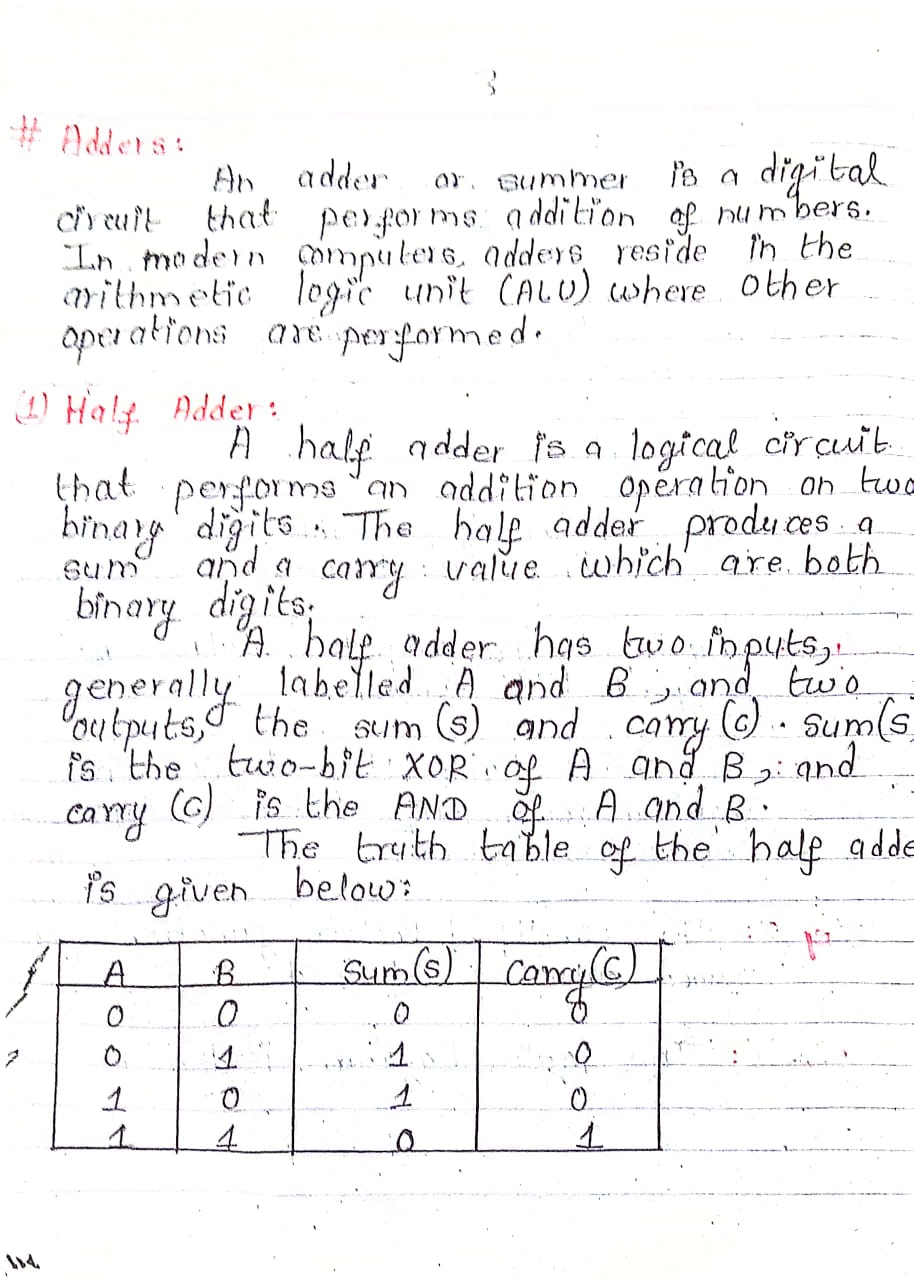 3
# Adders:
An adder or summer is a digital
circuit that performs addition of numbers.
In modern computers, adders reside in the
arithmetic logic unit (ALU) where other
operations are performed.
(1) Half Adder:
A half adder is a logical circuit
that performs an addition operation on two
binary digits. The half adder produces a
sum and a carry value which are both
binary digits.
A half adder has two inputs,
generally labelled A and B, and two
outputs, the sum (s) and carry (c). Sum(s
is the two-bit XOR of A and B, and
carry (c) is the AND of A and B.
The truth table of the half adde
is given below:
A B Sum(s) Carry(c)
0 0 0 0
0 1 1 0
1 0 1 0
1 1 0 1